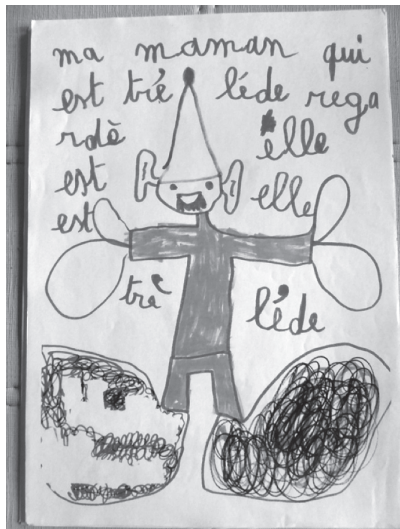 ma maman qui
est tré léde rega
rdè elle
est elle
est
trè léde